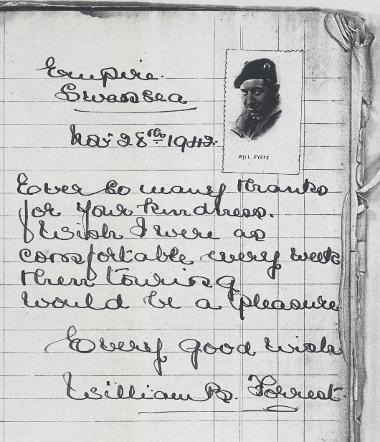 Empire
Swansea
Nov 28th 1942.
WILL FYFFE
Ever so many thanks
for your kindness.
I wish I were as
comfortable every week
then touring
would be a pleasure
Every good wish
William B. Forrest.